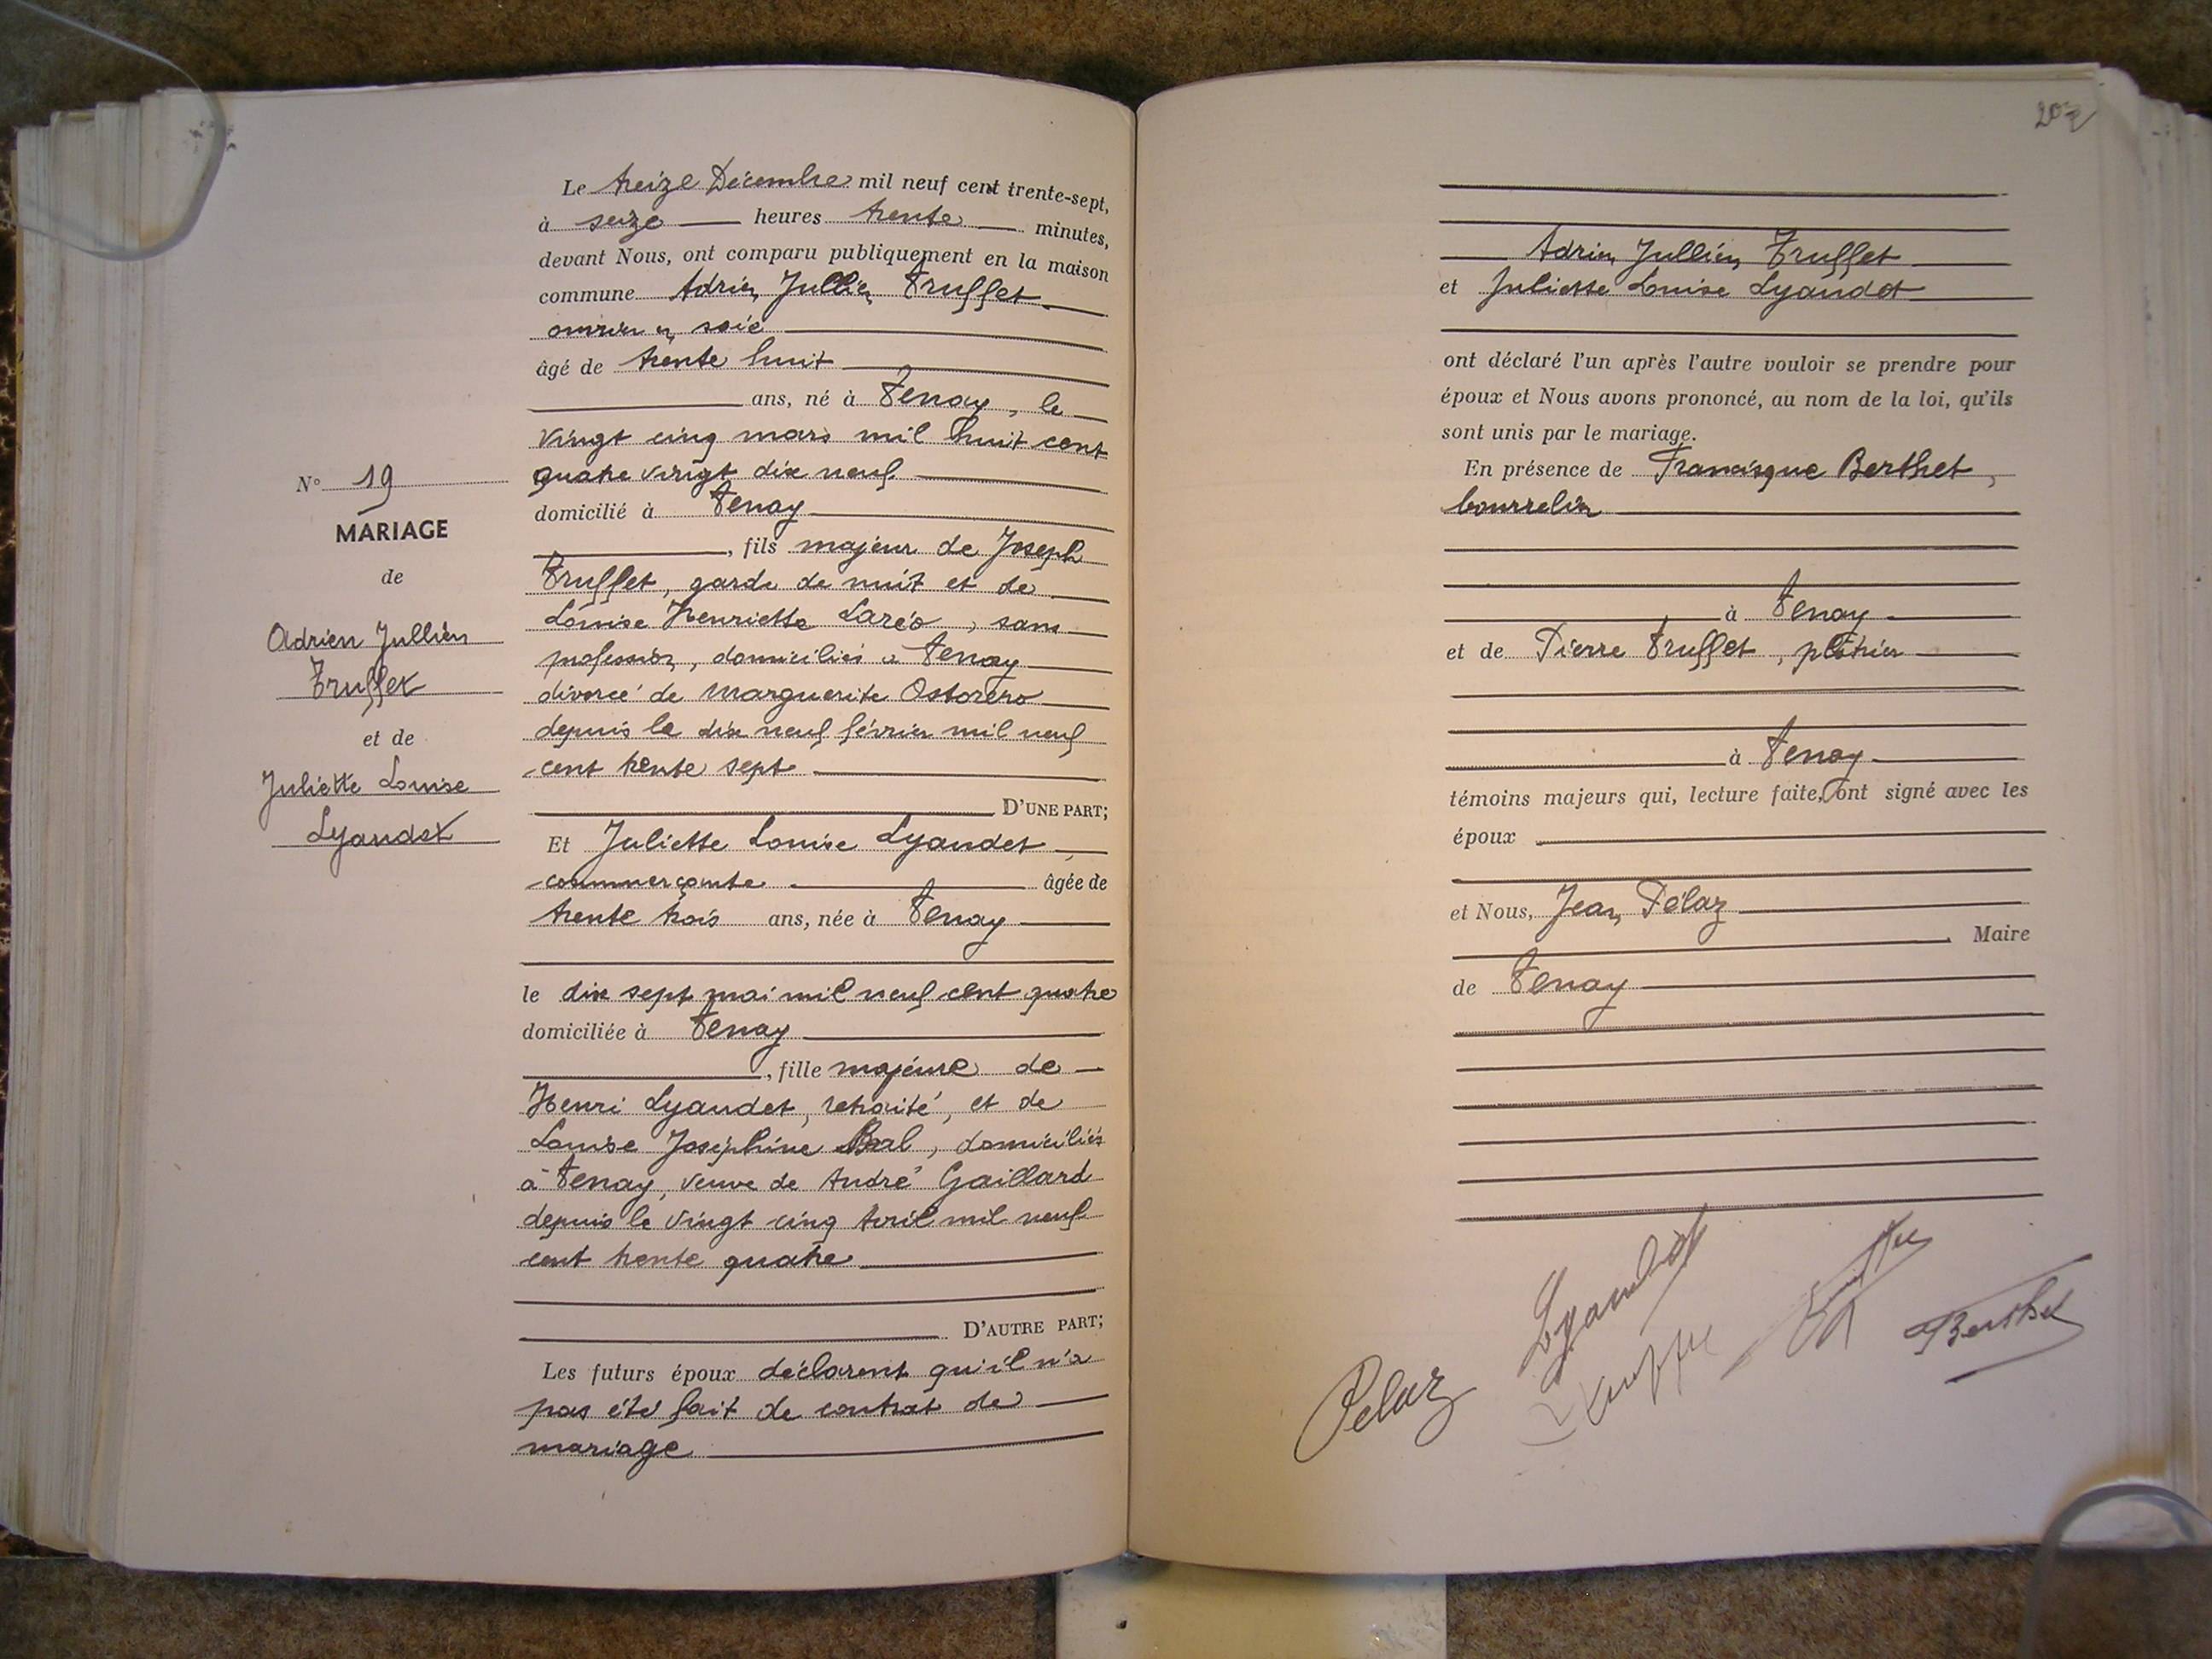 Le treize Décembre mil neuf cent trente-sept,
à seize heures trente minutes,
devant Nous, ont comparu publiquement en la maison
commune Adrien Jullien Truffet
ouvrier en soie
âgé de trente huit
ans, né à Tenay, le
vingt cinq mars mil huit cent
quatre vingt dix neuf
domicilié à Tenay
, fils majeur de Joseph
Truffet, garde de nuit et de
Louise Henriette Laréo, sans
profession, domiciliés à Tenay
divorcé de Marguerite Ostorero
depuis le dix neuf février mil neuf
cent trente sept
D'UNE PART;
Et Juliette Louise Lyaudet,
commerçante âgée de
trente trois ans, née à Tenay
le dix sept mai mil neuf cent quatre
domiciliée à Tenay
, fille majeure de
Henri Lyaudet, retraité, et de
Louise Joséphine Bal, domiciliés
à Tenay, veuve de André Gaillard
depuis le vingt cinq Avril mil neuf
cent trente quatre
D'AUTRE PART;
Les futurs époux déclarent qu'il n'a
pas été fait de contrat de
mariage
N° 19
MARIAGE
de
Adrien Jullien
Truffet
et de
Juliette Louise
Lyaudet
Adrien Jullien Truffet
et Juliette Louise Lyaudet
ont déclaré l'un après l'autre vouloir se prendre pour
époux et Nous avons prononcé, au nom de la loi, qu'ils
sont unis par le mariage.
En présence de Francisque Berthet,
bourrelier
à Tenay
et de Pierre Truffet, plâtrier
à Tenay
témoins majeurs qui, lecture faite, ont signé avec les
époux
et Nous, Jean Pélaz
Maire
de Tenay
Lyaudet
Berthet
Pelaz